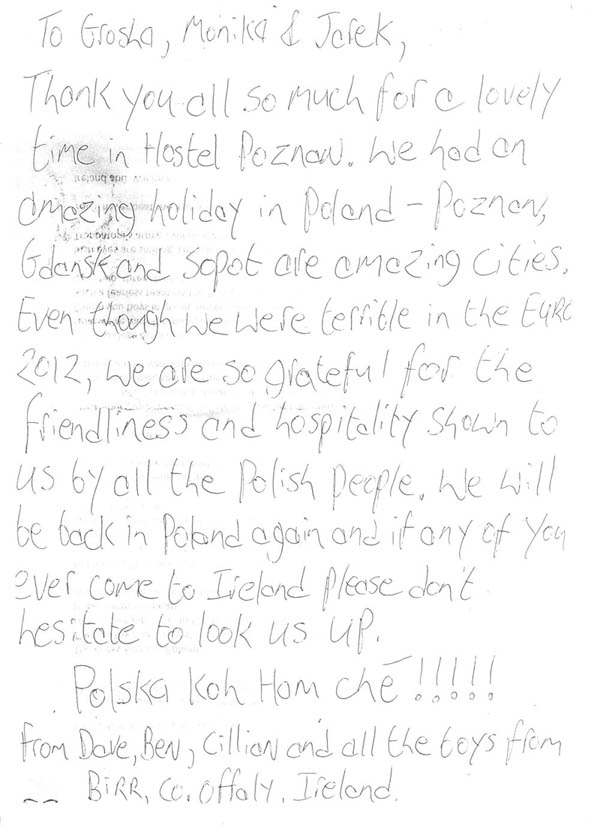 To Grosha, Monika & Jarek,
Thank you all so much for a lovely
time in Hostel Poznaw. We had an
amazing holiday in Poland - Poznan,
Gdansk and Sopot are amazing cities.
Even though we were terrible in the EURO
2012, we are so grateful for the
friendliness and hospitality shown to
us by all the Polish People. We will
be back in Poland again and if any of you
ever come to Ireland please don't
hesitate to look us up.
Polska Koh Ham ché !!!!!
From Dave, Ben, Cillian and all the boys from
-- BIRR, Co. Offaly, Ireland.